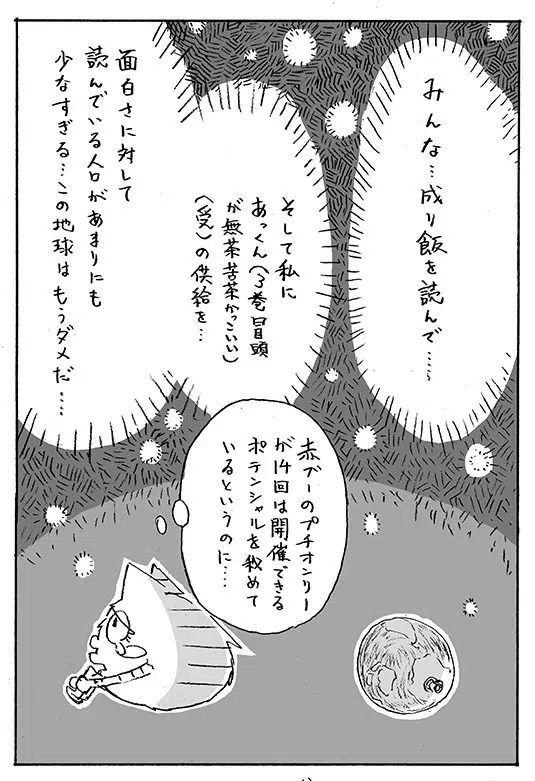 みんな…成り飯を読んで……
そして私に
あっくん(3巻冒頭
が無茶苦茶かっこいい)
(受)の供給を…
面白さに対して
読んでいる人口があまりにも
少なすぎる…この地球はもうダメだ……
赤ブーのプチオンリー
が14回は開催できる
ポテンシャルを秘めて
いるというのに……